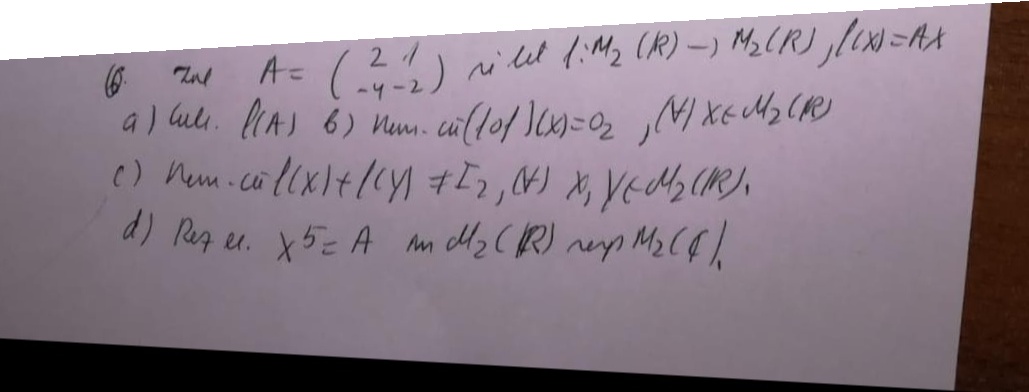 6. Fie A = ( 2 1 -4 -2 ) și let f: M₂(R) → M₂(R), f(X) = AX
a) Calc. f(A) b) Dem. că (f∘f)(X) = O₂, (∀) X ∈ M₂(R)
c) Dem. că f(X) + f(Y) ≠ I₂, (∀) X, Y ∈ M₂(R).
d) Rez ec. X⁵ = A în M₂(R) resp M₂(C).